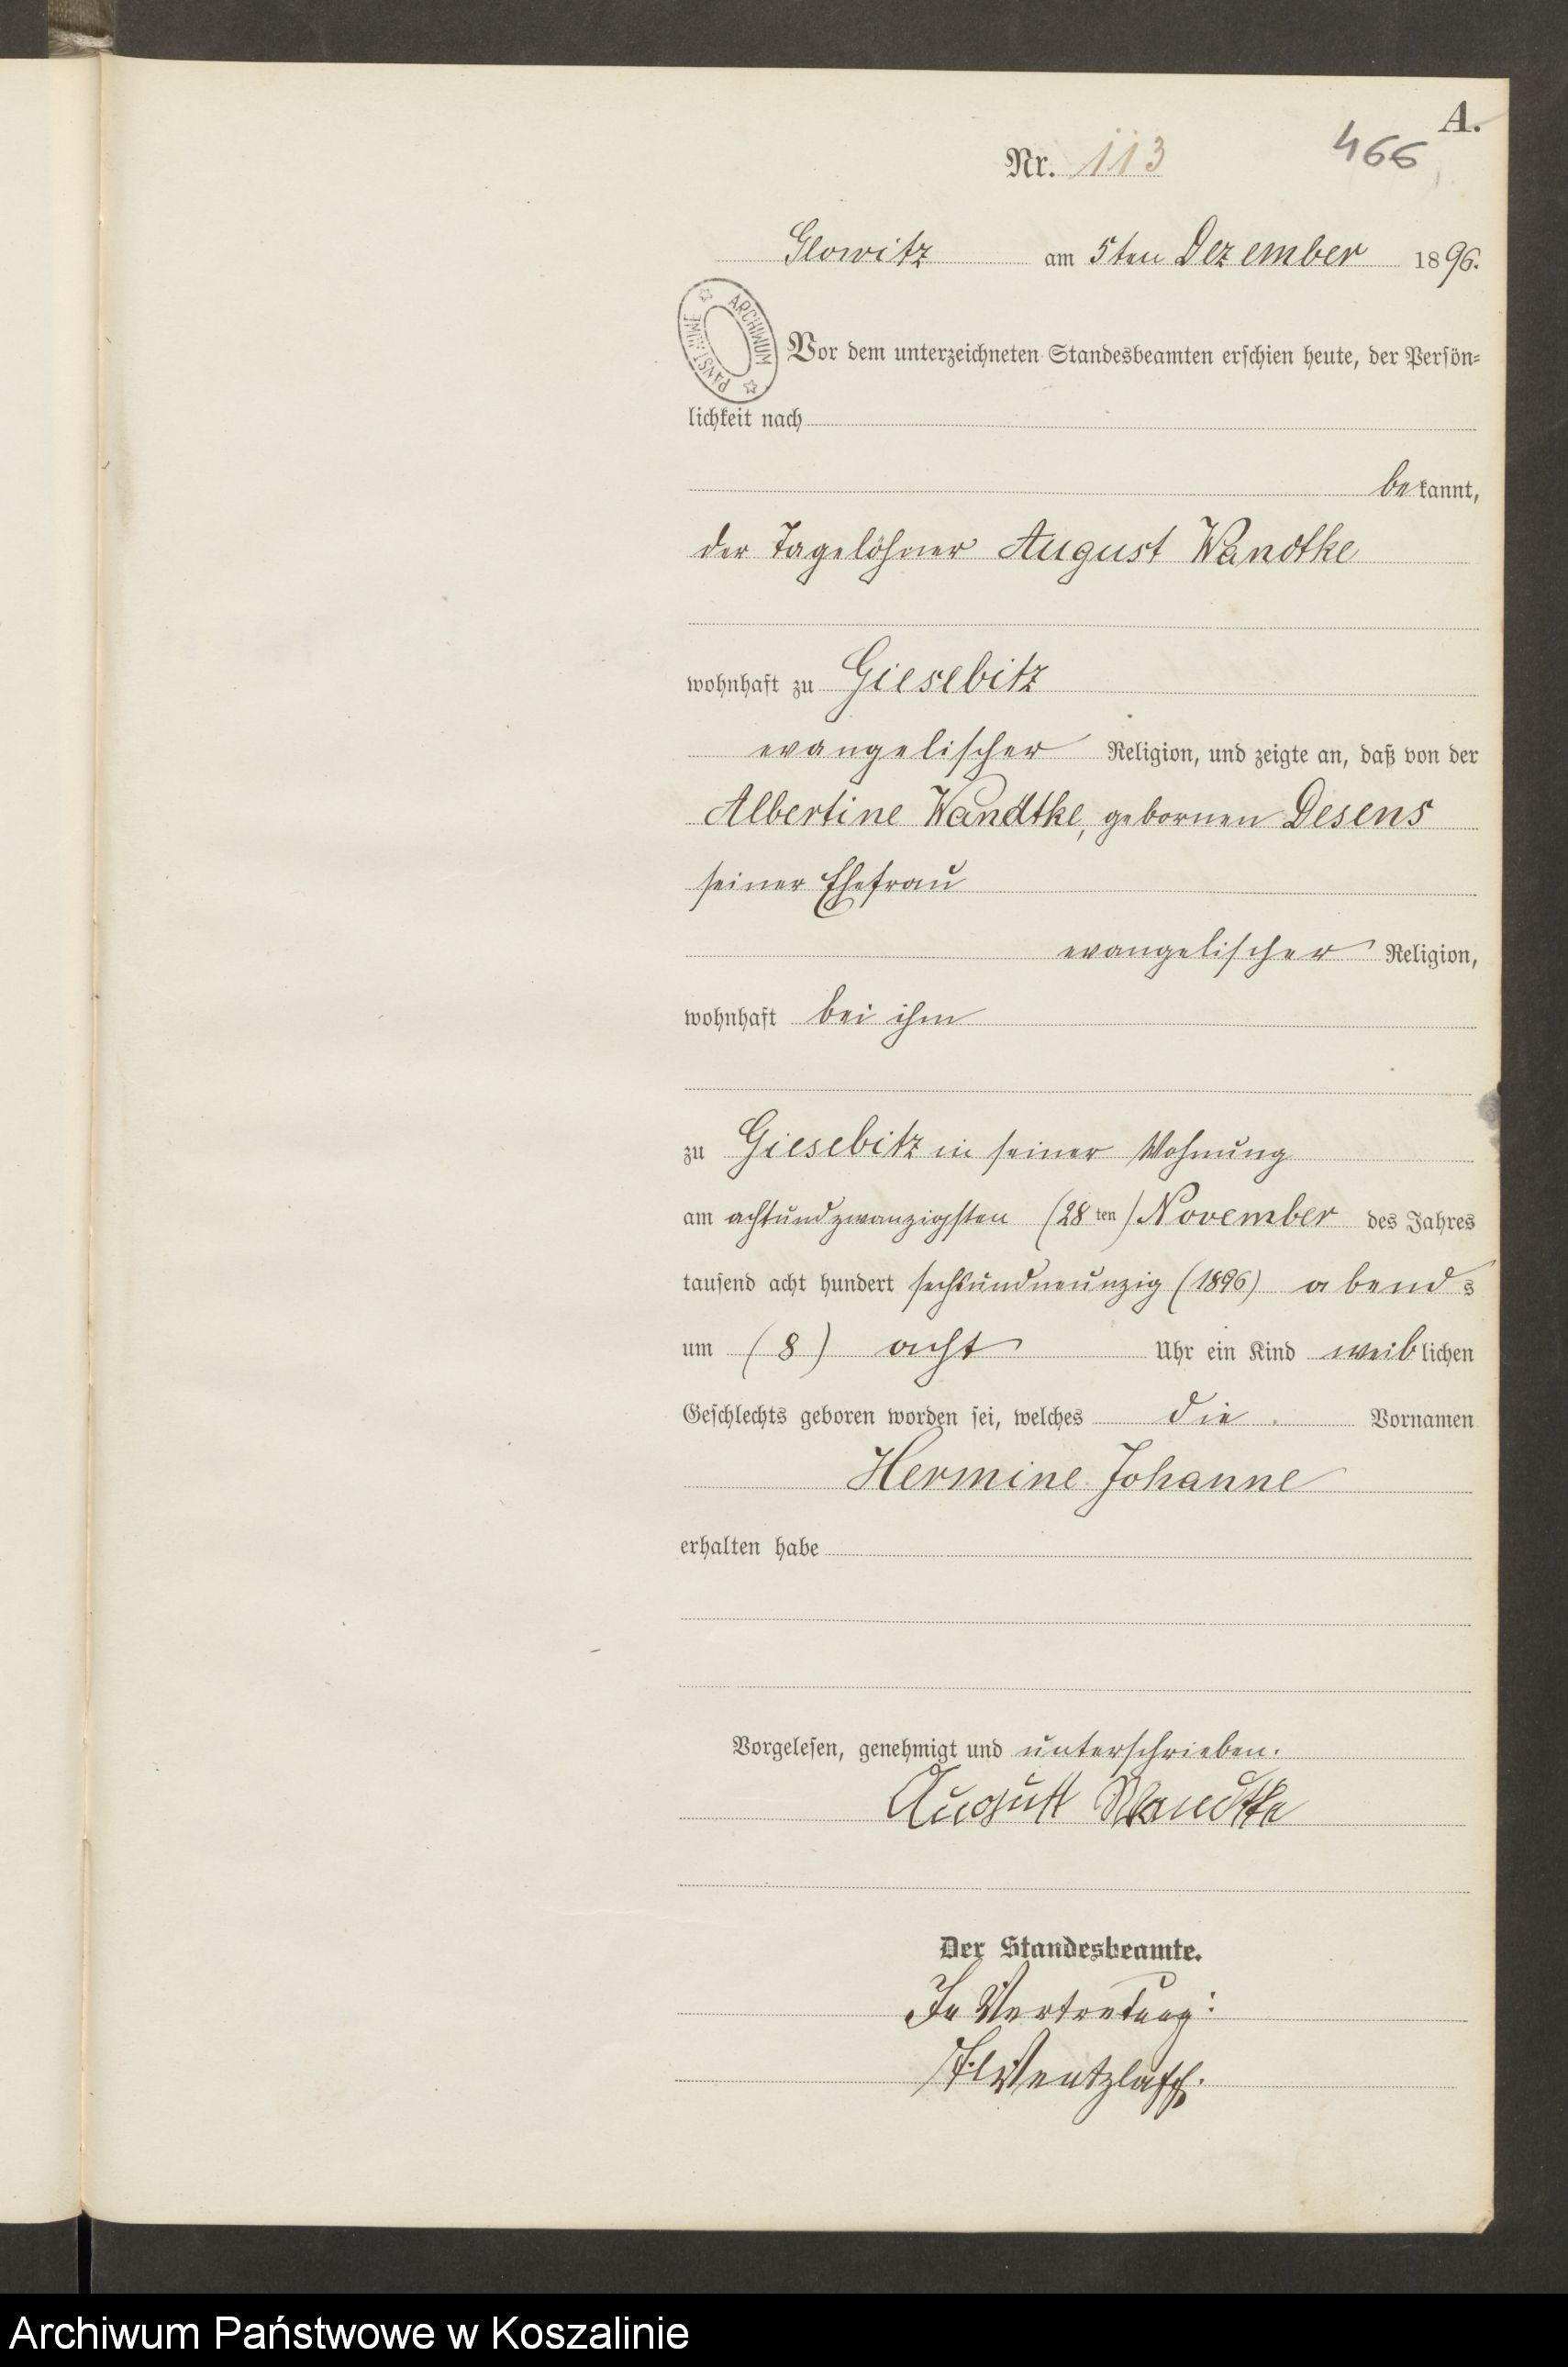 A.
466
Nr. 113
Glowitz am 5ten Dezember 1896.
ARCHIWUM PAŃSTWOWE
Vor dem unterzeichneten Standesbeamten erschien heute, der Persön-
lichkeit nach
bekannt,
der Tagelöhner August Wandtke
wohnhaft zu Giesebitz
evangelischer Religion, und zeigte an, daß von der
Albertine Wandtke, gebornen Desens
seiner Ehefrau
evangelischer Religion,
wohnhaft bei ihm
zu Giesebitz in seiner Wohnung
am achtundzwanzigsten (28ten) November des Jahres
tausend acht hundert sechsundneunzig (1896) abends
um (8) acht Uhr ein Kind weiblichen
Geschlechts geboren worden sei, welches die Vornamen
Hermine Johanne
erhalten habe
Vorgelesen, genehmigt und unterschrieben.
August Wandtke
Der Standesbeamte.
In Vertretung:
Wentzlaff.
Archiwum Państwowe w Koszalinie